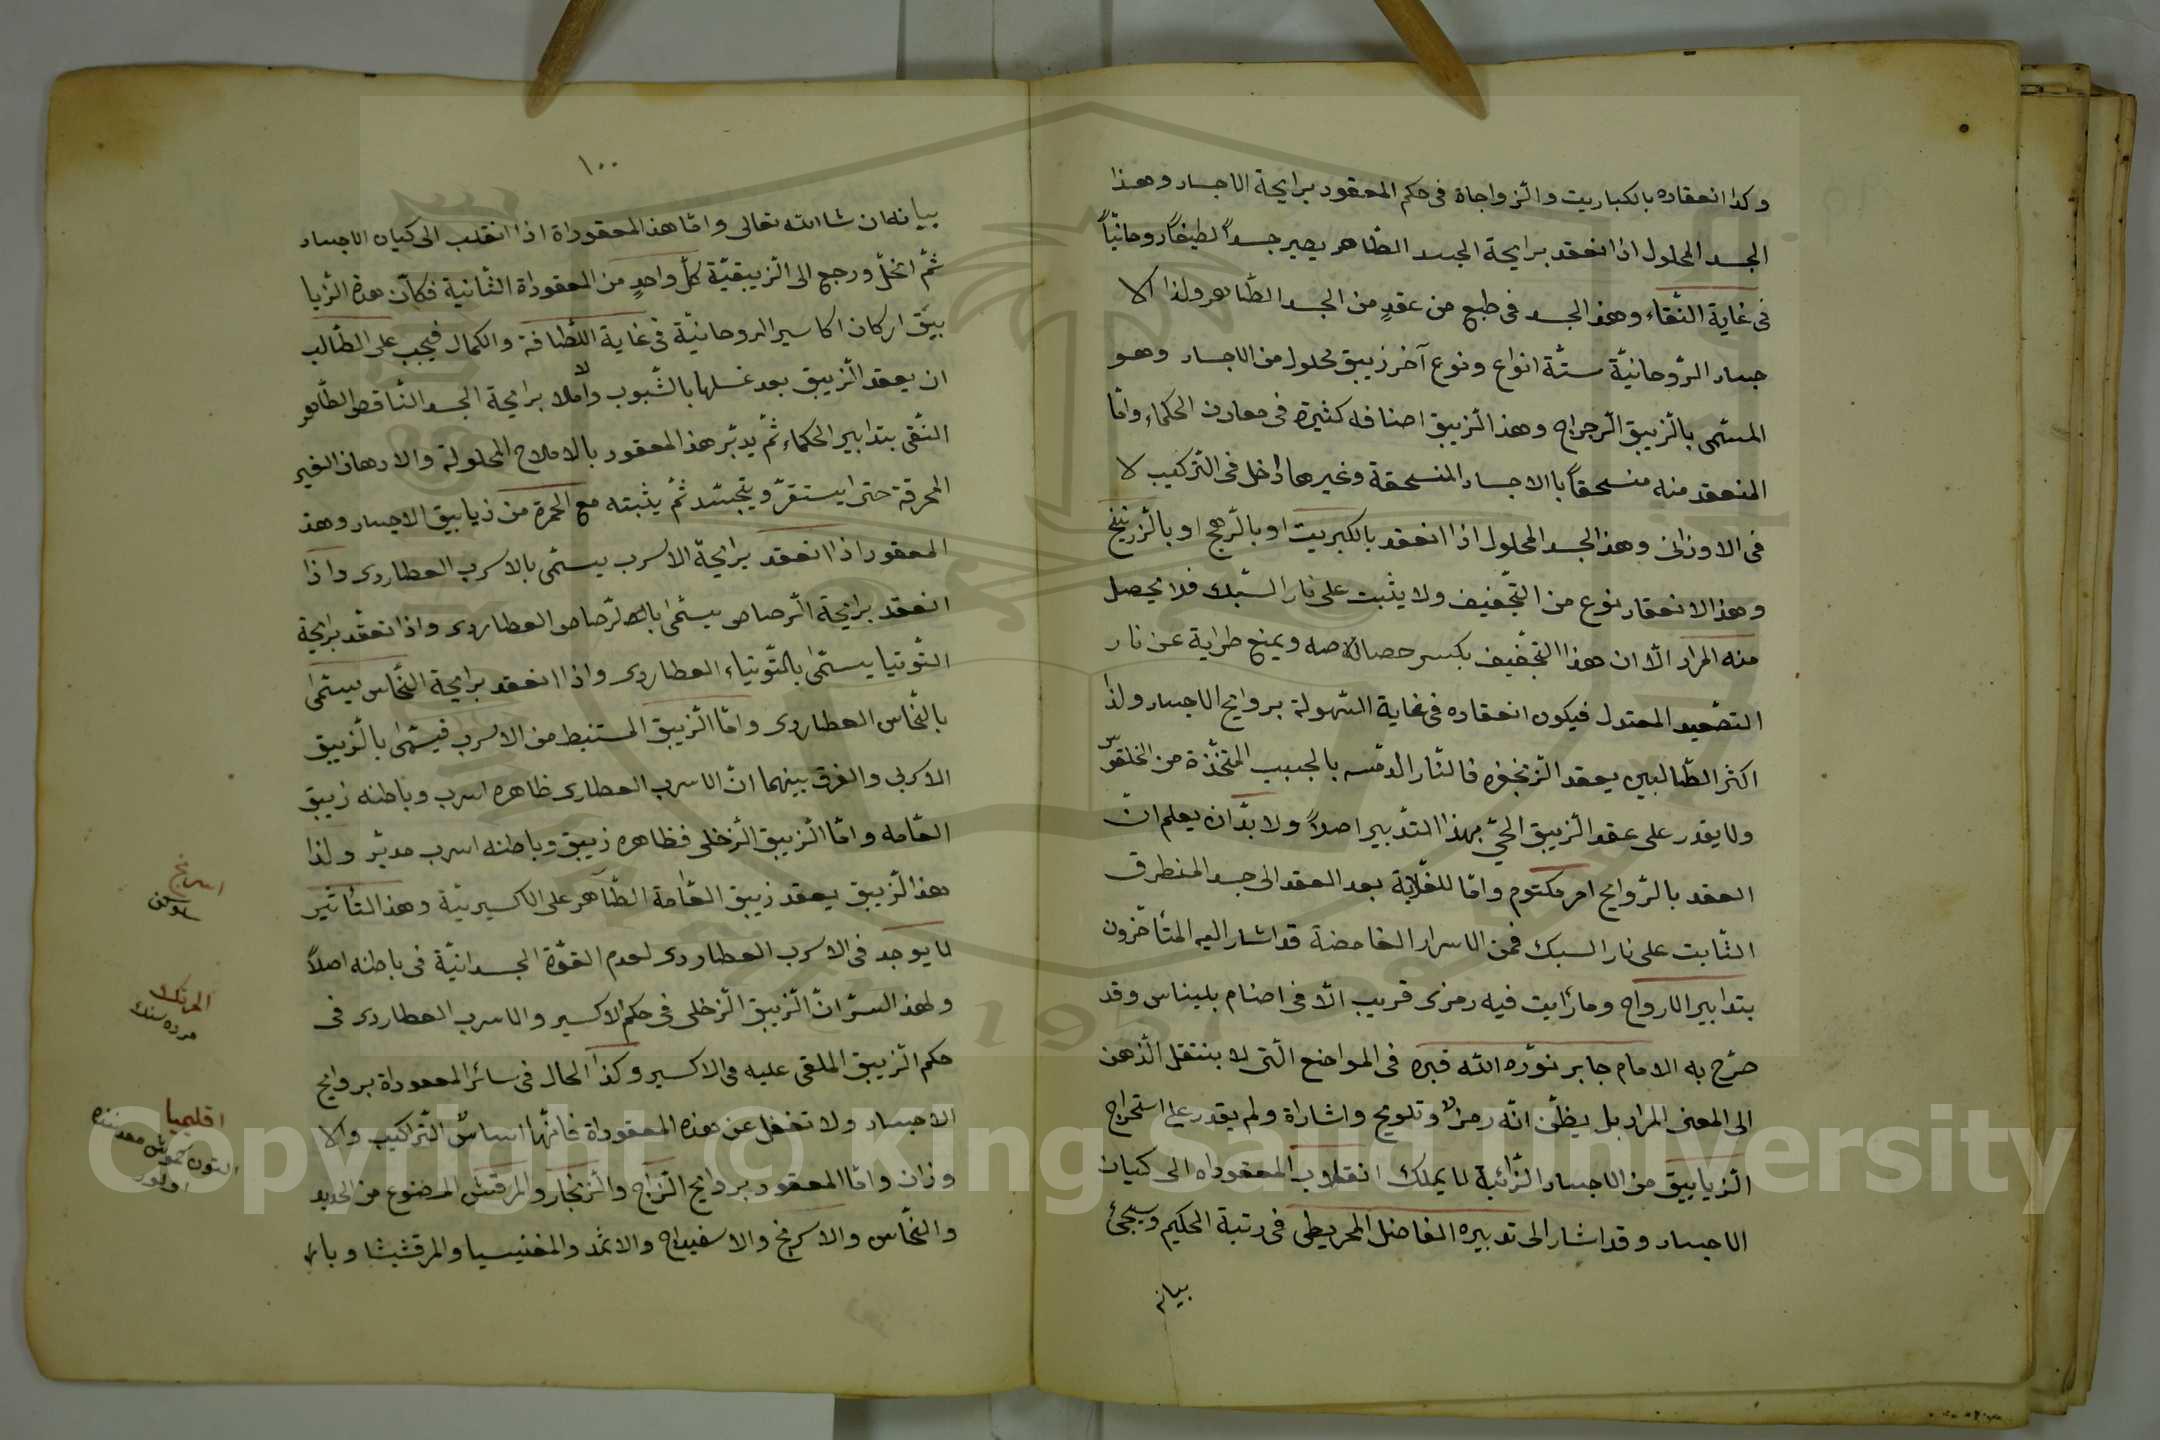 وكذا انعقاده بالكباريت والزواجاة فى حكم المعقود برايحة الاجساد وهذا
الجسد المحلول اذا انعقد برايحة الجسد الطاهر يصير جسداً لطيفاً روحانيّاً
فى غاية النّقاء وهذ الجسد فى طبع من عقدٍ من الجسد الطّاهر ولذا الا
جساد الرّوحانيّة ستّة انواع ونوع آخر زيبق محلول من الاجساد وهو
المسّمى بالزّيبق الرّجراج وهذ الزّيبق اصنافه كثيرة فى معادن الحكماء وامّا
المنعقد منه منسحقاً باالاجساد المنسحقة وغيرها داخل فى التّركيب لا
فى الاوزان وهذ الجسد المحلول اذا انعقد بالكبريت او بالرّهج او بالزّرنيخ
وهذ الانعقاد نوع من التّجفيف ولا يثبت على نار السّبك فلا يحصل
منه المراد الّا ان هذا التّجفيف يكسر ويمنع طراية عن نار
التصّعيد المعتدل فيكون انعقاده فى غاية السّهولة بروايح الاجساد ولذا
اكثر الطّالبين يعقد الزّنجفره فالنّار بالجبيب المتخّذة من الخلقوس
ولا يقدر على عقد الزّيبق الحيّ بهذا التدّبير اصلاً ولا بدّ ان يعلم انّ
العقد بالرّوايح امر مكتوم وامّا للغلابة بعد العقد الى جسد المنطرق
الثّابت على نار السبك فمن الاسرار الغامضة قد اشار اليه المتأخّرون
بتدابير الارواح وما رايت فيه رمزى قريب الّا فى اصنام بليناس وقد
صرّح به الامام جابر نوّره الله قبره فى المواضع الّتى لا ينتقل الذّهن
الى المعنى المراد بل يظنّ انّه رمز وتلويح واشاراة ولم يقدر على استخراج
الزّيابيق من الاجساد الزّائبة لا يملك انقلاب المعقوداه الى كيان
الاجساد وقد اشار الى تدبيره الفاضل المجريطى فى رتبة الحكيم وسيجئ
بيانه
١٠٠
بيانه ان شاالله تعالى وامّا هذ المعقوداة اذا انقلب الى كيان الاجساد
ثمّ انحلّ ورجع الى الزّيبقيّة كلّ واحدٍ من المعقوداة الثّانية فكأنّ هذة الزّيا
بيق اركان اكاسير الروحانيّة فى غاية اللّطافة والكمال فيجب على الطّالب
ان يعقد الزّيبق بعد غسلها بالشّبوب والاملا برايحة الجسد النّاقص الطّاهر
النّقى بتدابير الحكماء ثمّ يدبّر هذ المعقود بالاملاح المحلولة والادهان الغير
المحرقة حتّى ايستقرّ ويتجسّد ثمّ يثبته مع الحمرة من زيابيق الاجساد وهذ
المعقود اذا انعقد برايحة الاسرب يسمّى بالاسرب العطاردى واذا
انعقد برايحة الرّصاص يسمّى بالرّصاص العطاردى واذا انعقد برايحة
التّوتيا يسمّى بالتّوتياء العطاردى واذا انعقد برايحة النّحاس يسمّى
بالنّحاس العطاردى وامّا الزّيبق المستنبط من الاسرب فيسّمى بالزّيبق
الاسربى والفرق بينهما انّ الاسرب العطاردى ظاهره اسرب وباطنه زيبق
العّامه وامّا الزّيبق الزّحلى فظاهره زيبق وباطنه اسرب مدبّر ولذا
هذ الزّيبق يعقد زيبق العّامة الطّاهر على الاكسيريّة وهذ التّأثير
لا يوجد فى الاسرب العطاردى لعدم القوّة الجسدانيّة فى باطنه اصلاً
ولهذ السرّ انّ الزّيبق الزّحلى فى حكم الاكسير والاسرب العطاردى فى
حكم الزّيبق الملقى عليه فى الاكسير وكذا الحال فى سائر المعقوداة بروايح
الاجساد ولا تغفل عن هذه المعقوداة فانّها اساس التّراكيب والا
وزان وامّا المعقود بروايح الزّاج والزّنجار والمرقش المصنوع من الحديد
والنّحاس والاسرنج والاسفيداج والاثمد والمغنيسيا والمرقشيثا وبا
اسرنج
المرتك
مرده سنك
اقليميا